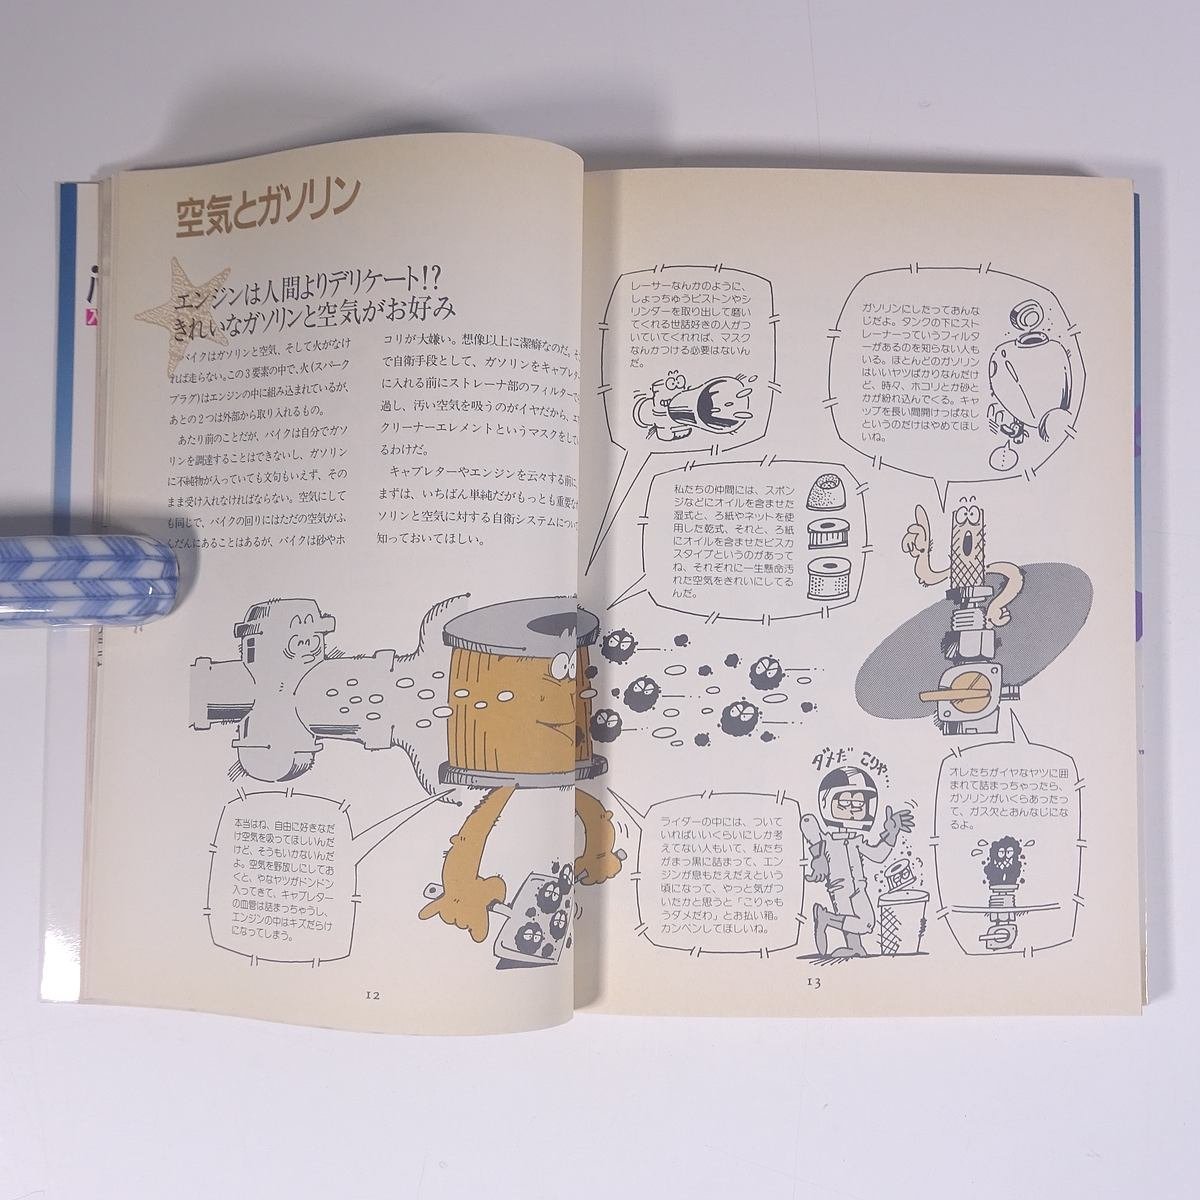 空気とガソリン
エンジンは人間よりデリケート!?
きれいなガソリンと空気がお好み
バイクはガソリンと空気、そして火がなけ
れば走らない。この3要素の中で、火(スパーク
プラグ)はエンジンの中に組み込まれているが、
あとの2つは外部から取り入れるもの。
あたり前のことだが、バイクは自分でガソ
リンを調達することはできないし、ガソリン
に不純物が入っていても文句もいえず、その
まま受け入れなければならない。空気にして
も同じで、バイクの回りにはただの空気がふ
んだんにあることはあるが、バイクは砂やホ
コリが大嫌い。想像以上に潔癖なのだ。そ
で自衛手段として、ガソリンをキャブレタ
に入れる前にストレーナ部のフィルターで
過し、汚い空気を吸うのがイヤだから、エ
クリーナーエレメントというマスクをして
るわけだ。
キャブレターやエンジンを云々する前に
まずは、いちばん単純だがもっとも重要な
ソリンと空気に対する自衛システムについ
知っておいてほしい。
本当はね、自由に好きなだ
け空気を吸ってほしいんだ
けど、そうもいかないんだ
よ。空気を野放しにしてお
くと、やなヤツがドンドン
入ってきて、キャブレター
の血管は詰まっちゃうし、
エンジンの中はキズだらけ
になってしまう。
12
レーサーなんかのように、
しょっちゅうピストンやシ
リンダーを取り出して磨い
てくれる世話好きの人がつ
いていてくれれば、マスク
なんかつける必要はないん
だ。
ガソリンにしたってあんな
じだよ。タンクの下にスト
レーナーっていうフィルタ
ーがあるのを知らない人も
いる。ほとんどのガソリン
はいいヤツばかりなんだけ
ど、時々、ホコリとか砂と
かが紛れ込んでくる。キャ
ップを長い間開けっぱなし
というのだけはやめてほし
いね。
私たちの仲間には、スポン
ジなどにオイルを含ませた
湿式と、ろ紙やネットを使
用した乾式、それと、ろ紙
にオイルを含ませたビスカ
スタイプというのがあって
ね、それぞれに一生懸命汚
れた空気をきれいにしてる
んだ。
ダメだ こりゃ…
ライダーの中には、ついて
いればいいくらいにしか考
えてない人もいて、私たち
がまっ黒に詰まって、エン
ジンが息もたえだえという
頃になって、やっと気がつ
いたかと思うと「こりゃも
うダメだわ」とお払い箱。
カンベンしてほしいね。
オレたちがイヤなヤツに囲
まれて詰まっちゃったら、
ガソリンがいくらあったっ
て、ガス欠とおんなじにな
るよ。
13